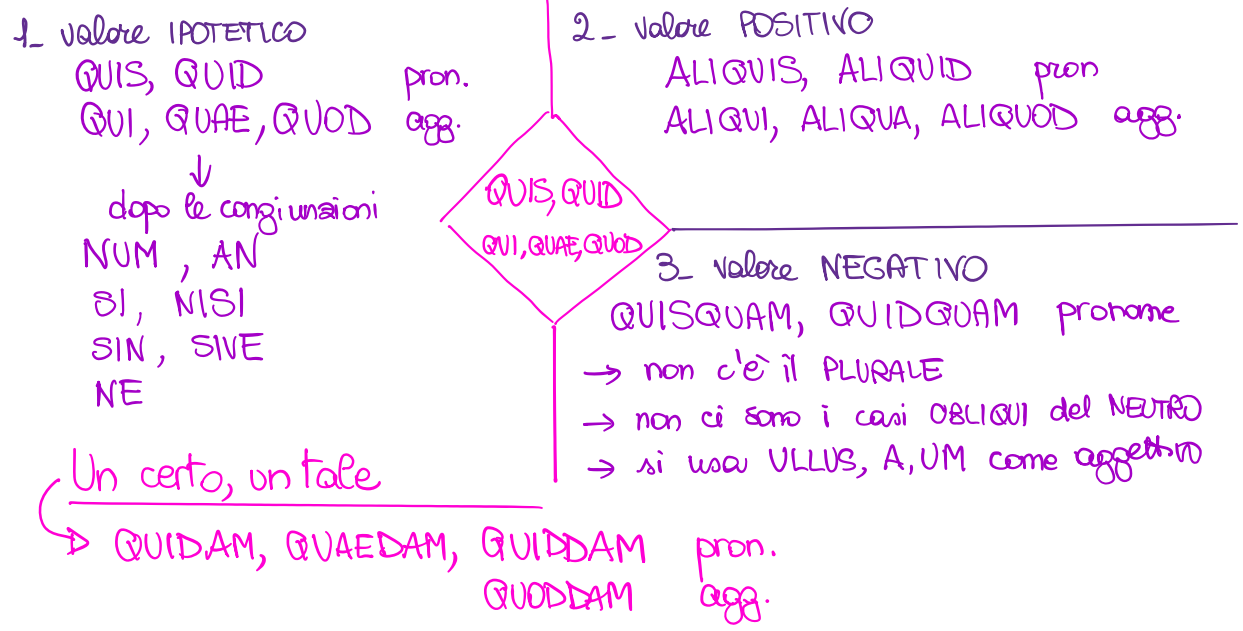 1_ valore IPOTETICO
QUIS, QUID pron.
QUI, QUAE, QUOD agg.
dopo le congiunzioni
NUM , AN
SI, NISI
SIN, SIVE
NE
2_ valore POSITIVO
ALIQUIS, ALIQUID pron
ALIQUI, ALIQUA, ALIQUOD agg.
QUIS, QUID
QUI, QUAE, QUOD
3_ valore NEGATIVO
QUISQUAM, QUIDQUAM pronome
→ non c'è il PLURALE
→ non ci sono i casi OBLIQUI del NEUTRO
→ si usa ULLUS, A, UM come aggettivo
Un certo, un tale
QUIDAM, QUAEDAM, QUIDDAM pron.
QUODDAM agg.